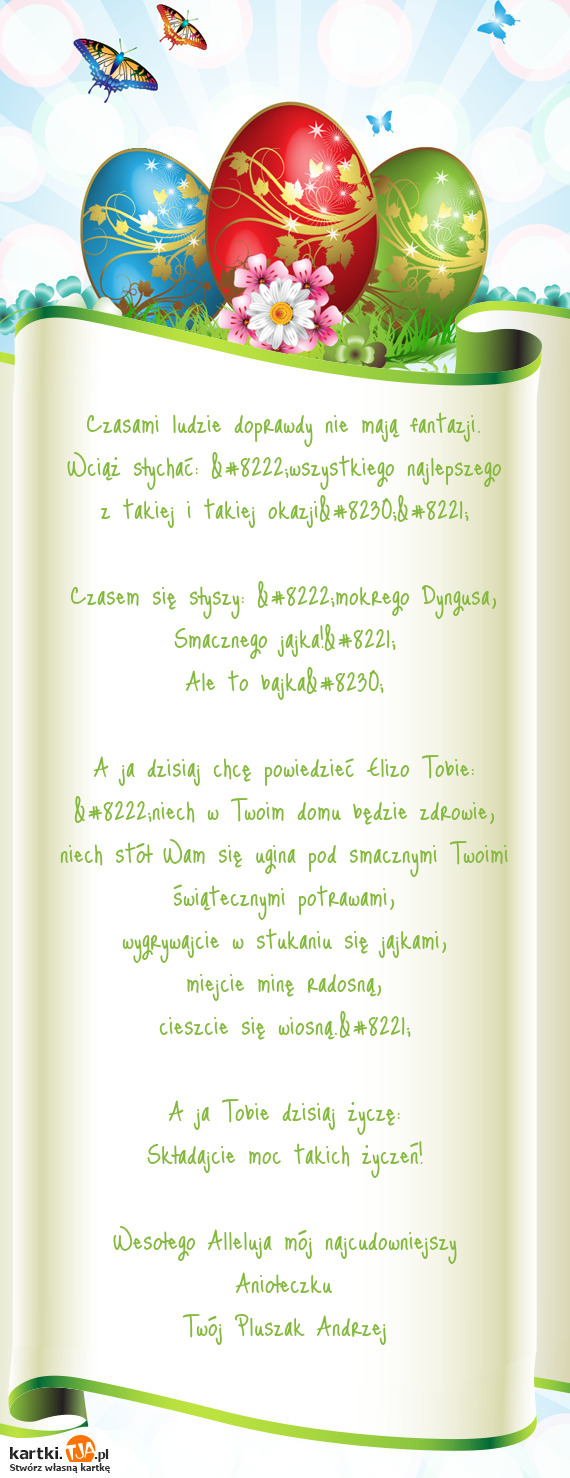 Czasami ludzie doprawdy nie mają fantazji.
Wciąż słychać: &#8222;wszystkiego najlepszego
z takiej i takiej okazji&#8230;&#8221;
Czasem się słyszy: &#8222;mokrego Dyngusa,
Smacznego jajka!&#8221;
Ale to bajka&#8230;
A ja dzisiaj chcę powiedzieć Elizo Tobie:
&#8222;niech w Twoim domu będzie zdrowie,
niech stół Wam się ugina pod smacznymi Twoimi
świątecznymi potrawami,
wygrywajcie w stukaniu się jajkami,
miejcie minę radosną,
cieszcie się wiosną.&#8221;
A ja Tobie dzisiaj życzę:
Składajcie moc takich życzeń!
Wesołego Alleluja mój najcudowniejszy
Aniołeczku
Twój Pluszak Andrzej
kartki.TJA.pl
Stwórz własną kartkę